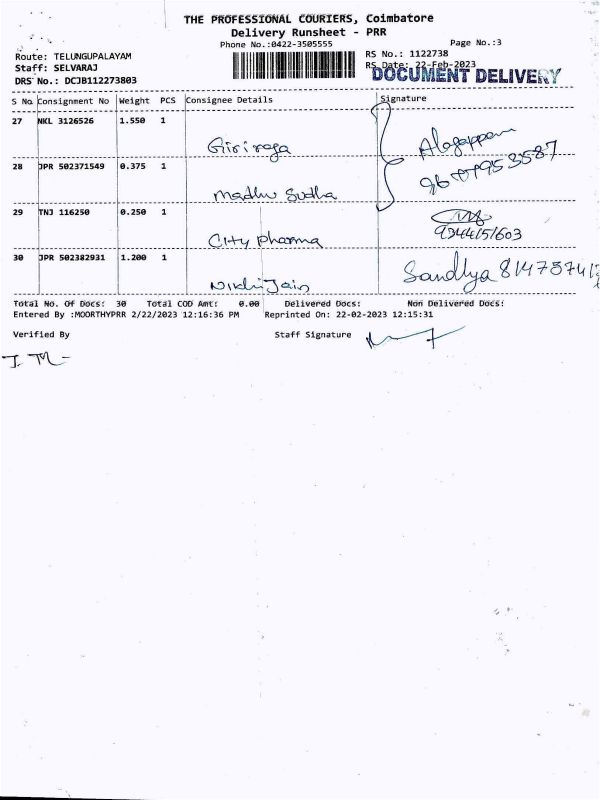 THE PROFESSIONAL COURIERS, Coimbatore
Delivery Runsheet - PRR
Phone No.:0422-3505555
Page No.:3
Route: TELUNGUPALAYAM
RS No.: 1122738
Staff: SELVARAJ
RS Date: 22-Feb-2023
DOCUMENT DELIVERY
DRS No.: DCJB112273803
S No Consignment No Weight PCS Consignee Details Signature
27 NKL 3126526 1.550 1
Giriraga Alagappan
28 JPR 502371549 0.375 1
Madhu Sudha
29 TNJ 116250 0.250 1
City pharma 9344151603
30 JPR 502382931 1.200 1
Nikhi Jain Sandhya
Total No. Of Docs: 30 Total COD Amt: 0.00 Delivered Docs: Non Delivered Docs:
Entered By :MOORTHYPRR 2/22/2023 12:16:36 PM Reprinted On: 22-02-2023 12:15:31
Verified By Staff Signature